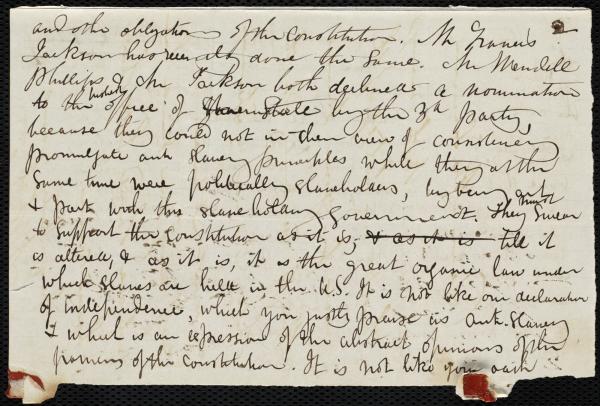 2
and other obligations of the Constitution. Mr Francis
Jackson has recently done the same. Mr Wendell
Phillips & Mr Jackson both declined a nomination
to the office of by the 3d party,
because they could not in their view of consistency
promulgate anti slavery principles while they at the
same time were politically slaveholders, by being
& part with this slaveholding government. They must swear
to support the Constitution as it is, & as it is till it
is altered & as it is, it is the great organic law under
which slaves are held in the U.S. It is not like our declaration
of independence, which you justly praise as anti slavery
& which is an expression of the abstract opinions of the
framers of the Constitution. It is not like your oath